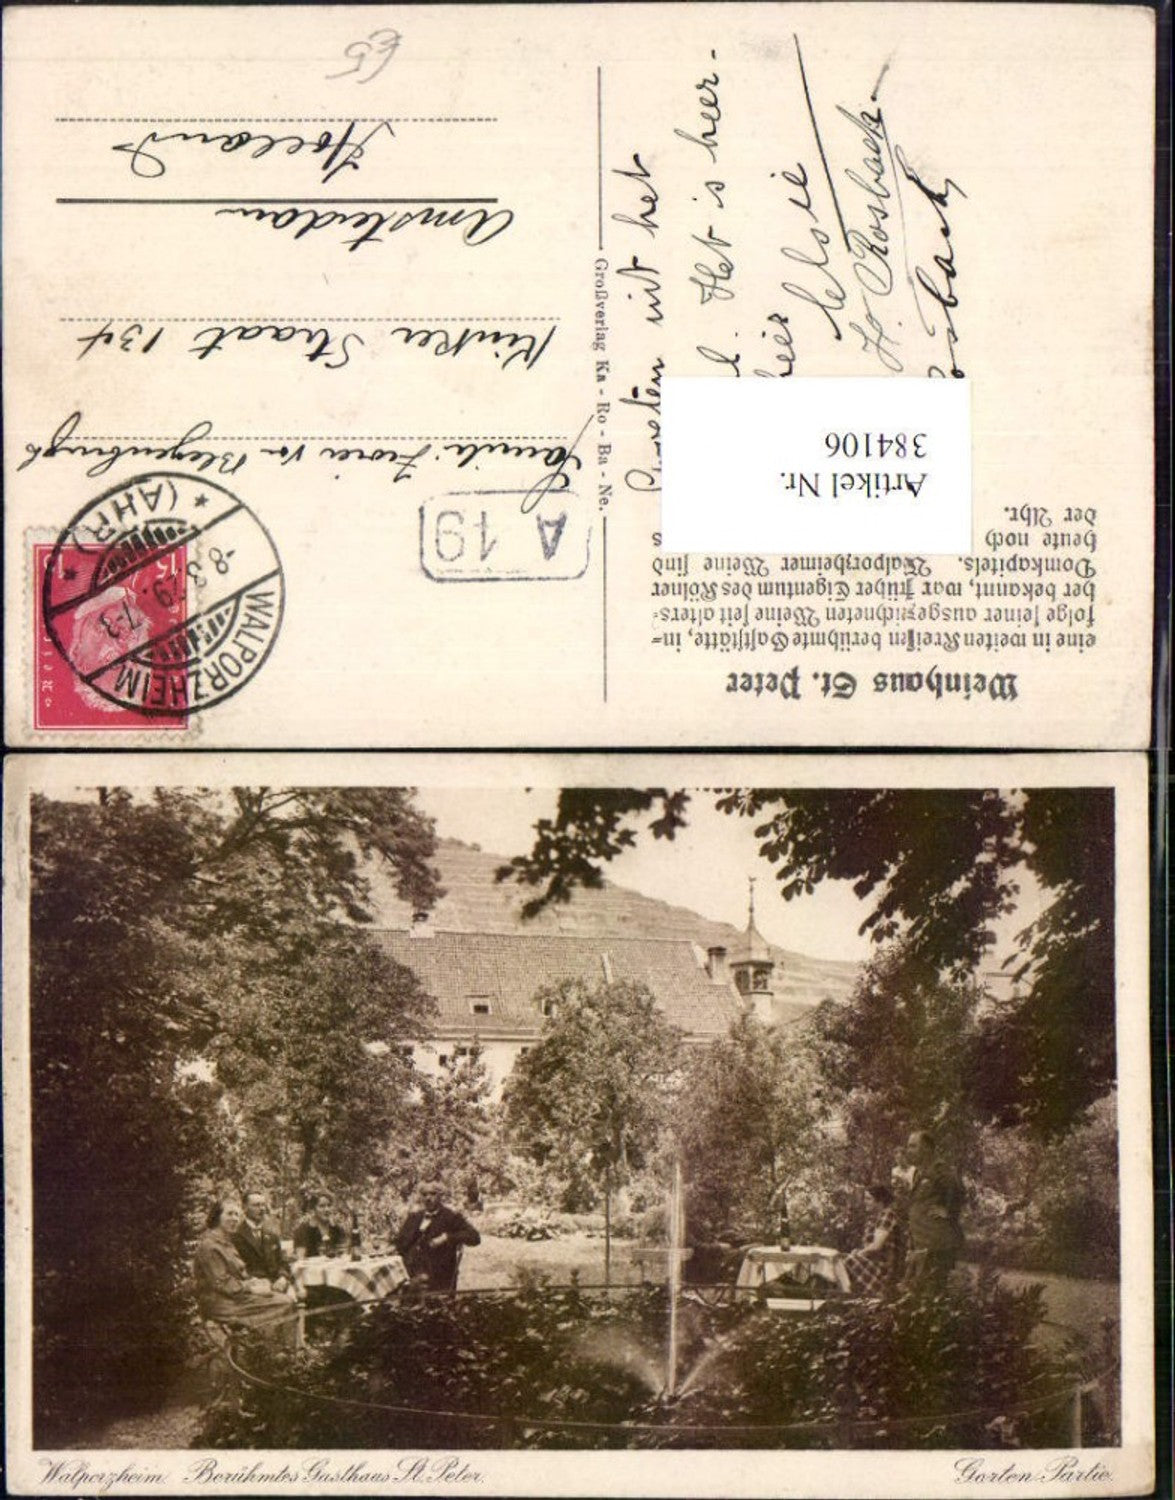 Weinhaus St. Peter
eine in weiten Kreisen berühmte Gaststätte, in-
folge seiner ausgezeichneten Weine seit alters-
her bekannt, war früher Eigentum des Kölner
Domkapitels. Walporzheimer Weine sind
heute noch
der Ahr.
Artikel Nr.
384106
nid het
Het is heer-
H. Rosbach
Großverlag Ka - Ro - Ba - Ne.
A 19
WALPORZHEIM
-8.3.29.7-3
* (AHR) *
15
Kinker Straat 134
Amsterdam
Holland
65
Walporzheim. Berühmtes Gasthaus St. Peter.
Garten-Partie.